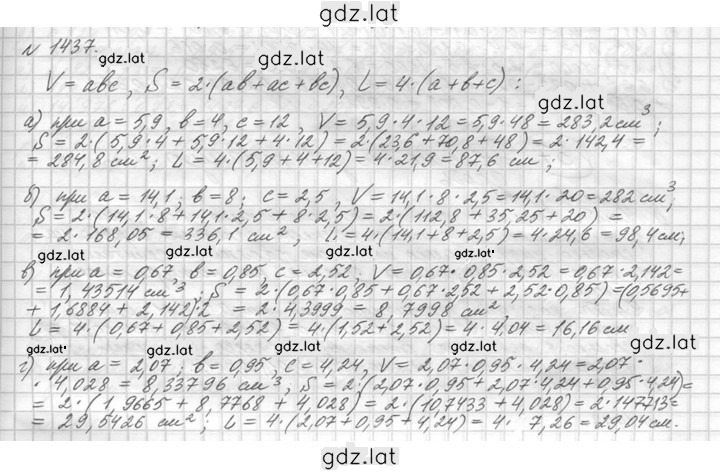 gdz.lat
№ 1437.
gdz.lat gdz.lat
V = abc, S = 2·(ab+ac+bc), L = 4·(a+b+c) :
gdz.lat
а) при a = 5,9, b = 4, c = 12, V = 5,9·4·12 = 5,9·48 = 283,2 см³;
S = 2·(5,9·4+5,9·12+4·12) = 2·(23,6+70,8+48) = 2·142,4 =
= 284,8 см²; L = 4·(5,9+4+12) = 4·21,9 = 87,6 см;
gdz.lat gdz.lat gdz.lat
б) при a = 14,1, b = 8, c = 2,5, V = 14,1·8·2,5 = 14,1·20 = 282 см³;
S = 2·(14,1·8+14,1·2,5+8·2,5) = 2·(112,8+35,25+20) =
= 2·168,05 = 336,1 см², L = 4·(14,1+8+2,5) = 4·24,6 = 98,4 см;
gdz.lat gdz.lat
в) при a = 0,67, b = 0,85, c = 2,52, V = 0,67·0,85·2,52 = 0,67·2,142 =
= 1,43514 см³; S = 2·(0,67·0,85+0,67·2,52+2,52·0,85) = (0,5695+
+ 1,6884+2,142)·2 = 2·4,3999 = 8,7998 см²,
gdz.lat gdz.lat
L = 4·(0,67+0,85+2,52) = 4·(1,52+2,52) = 4·4,04 = 16,16 см
gdz.lat gdz.lat gdz.lat gdz.lat
г) при a = 2,07, b = 0,95, c = 4,24, V = 2,07·0,95·4,24 = 2,07·
· 4,028 = 8,33796 см³, S = 2·(2,07·0,95+2,07·4,24+0,95·4,24) =
= 2·(1,9665+8,7768+4,028) = 2·(10,7433+4,028) = 2·14,7713 =
= 29,5426 см²; L = 4·(2,07+0,95+4,24) = 4· 7,26 = 29,04 см.
gdz.lat gdz.lat gdz.lat
gdz.lat